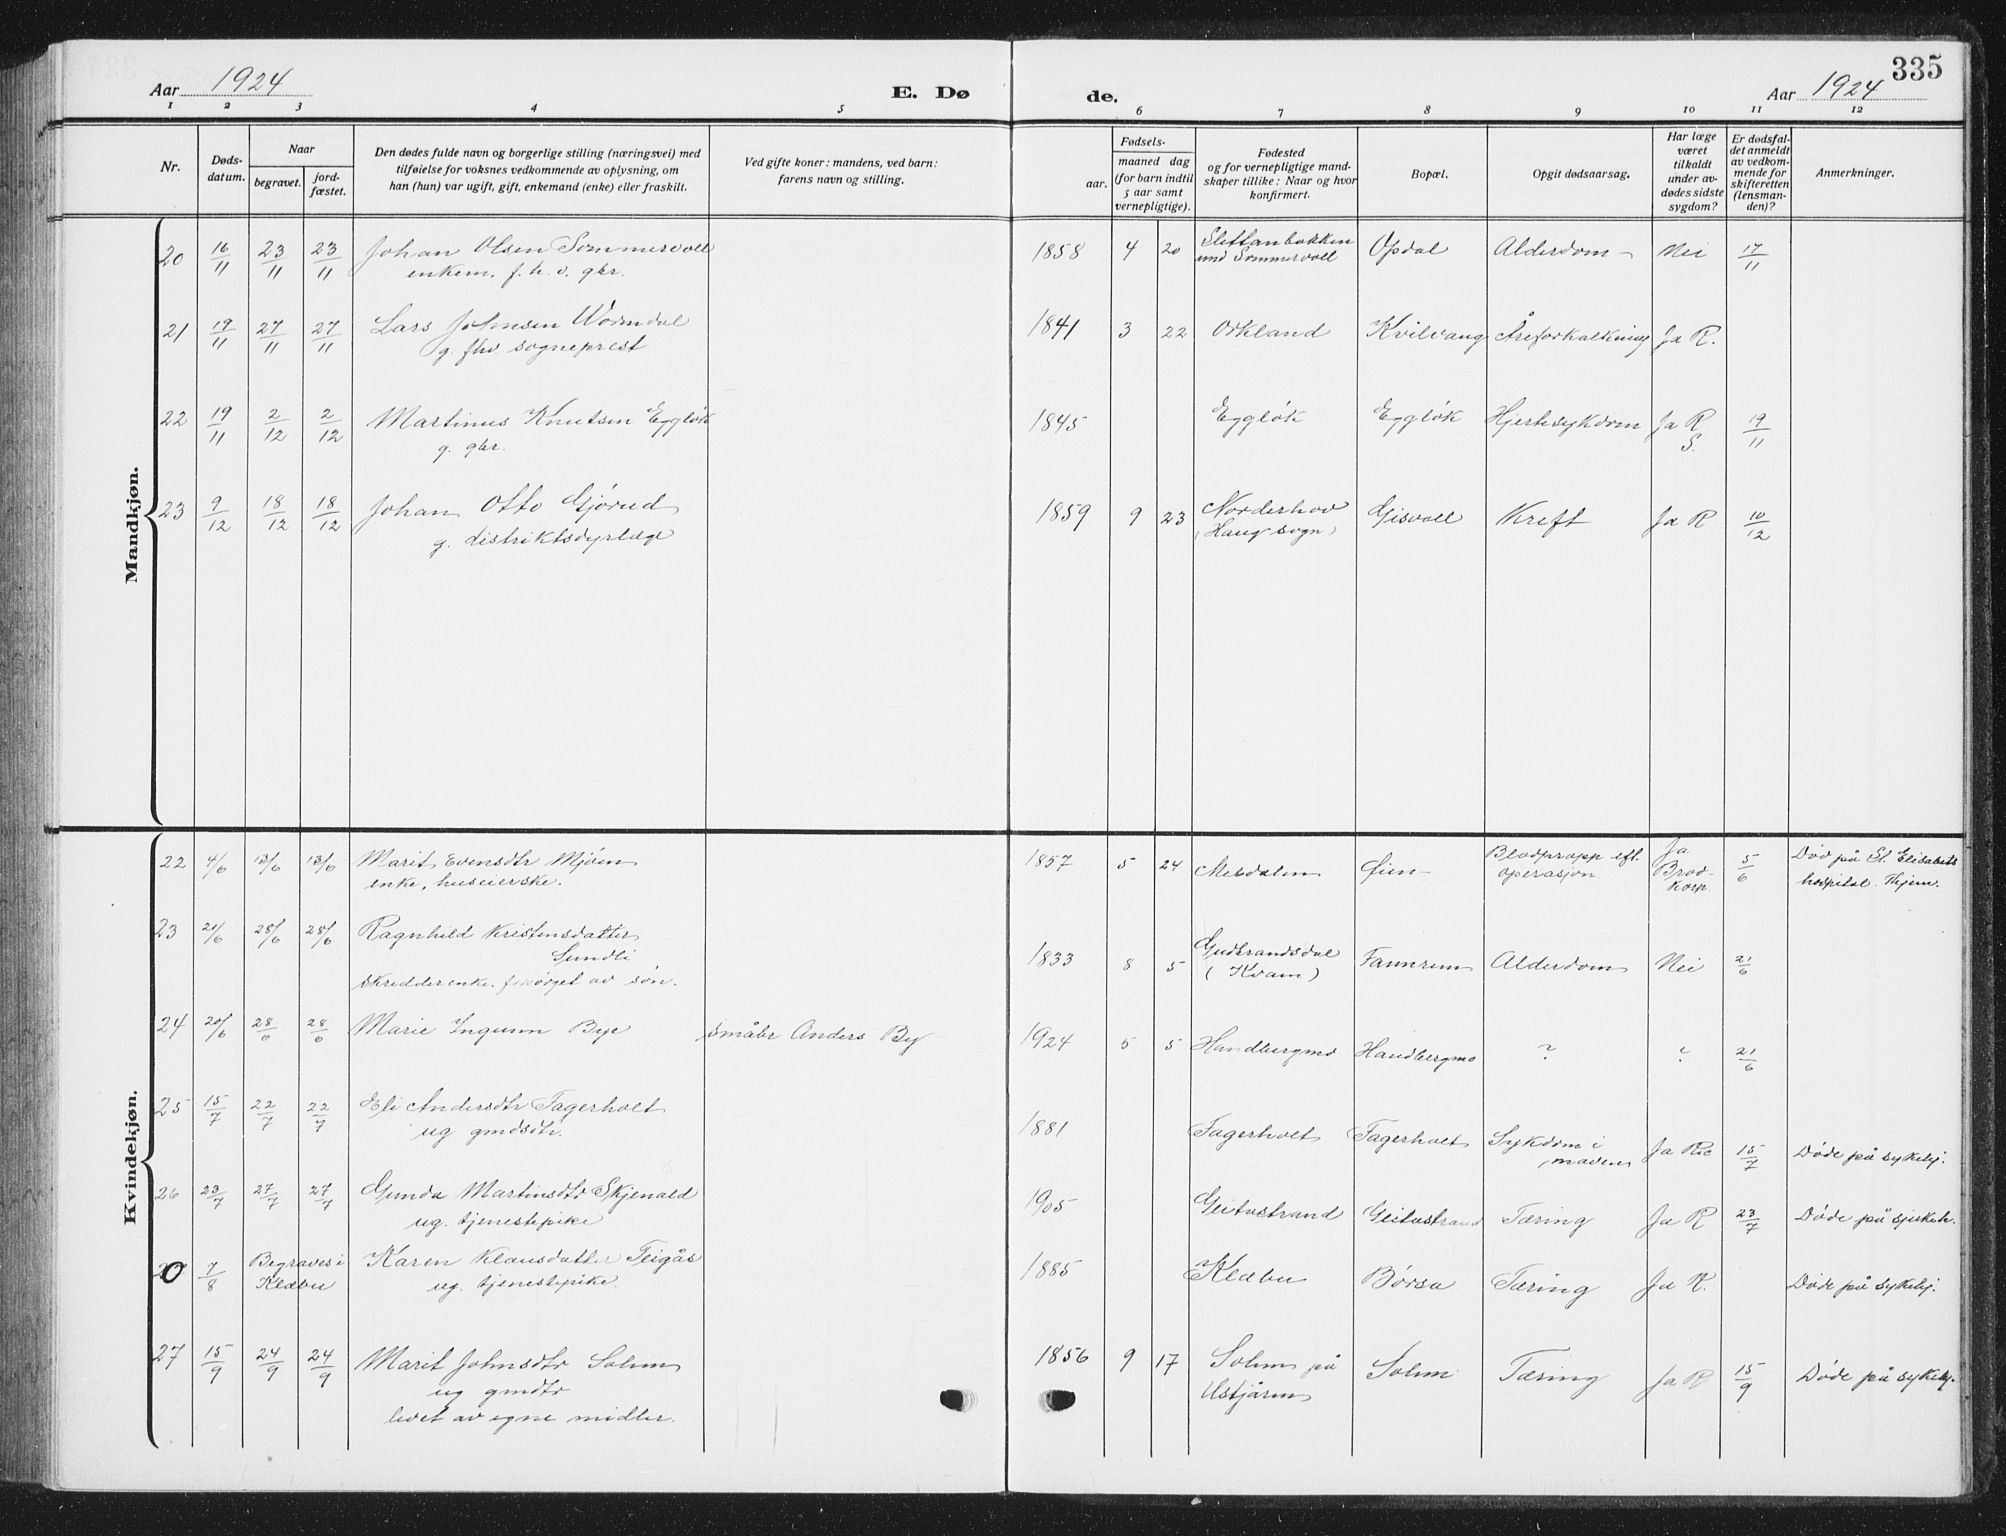 335
Aar 1924
E. Dø
de.
Aar 1924
1 2 3 4 5 6 7 8 9 10 11 12
Nr.
Døds-
datum.
Naar
begravet.
jord-
fæstet.
Den dødes fulde navn og borgerlige stilling (næringsvei) med
tilføielse for voksnes vedkommende av oplysning, om
han (hun) var ugift, gift, enkemand (enke) eller fraskilt.
Ved gifte koner: mandens, ved barn:
farens navn og stilling.
Fødsels-
aar.
maaned dag
(for barn indtil
5 aar samt
vernepligtige).
Fødested
og for vernepligtige mand-
skaper tillike: Naar og hvor
konfirmert.
Bopæl.
Opgit dødsaarsag.
Har læge
været
tilkaldt
under av-
dødes sidste
sygdom?
Er dødsfal-
det anmeldt
av vedkom-
mende for
skifteretten
(lensman-
den)?
Anmerkninger.
Mandkjøn.
20 16/11 23/11 23/11 Johan Olsen Sommervoll 1858 4 20 Slettanbakken Opdal Alderdom Nei 17/11
enkem. f. h. v. gbr. und Sommervoll
21 19/11 27/11 27/11 Lars Johnsen Wormdal 1841 3 22 Orkland Kvilvang Åreforkalkning Ja R.
g. fhv. sogneprest
22 19/11 2/12 2/12 Martinus Knutsen Eggløk 1845 Eggløk Eggløk Hjertesykdom Ja R 19/11
g. gbr. S.
23 9/12 18/12 18/12 Johan Otto Gjørud 1859 9 23 Norderhov Gisvoll Kreft Ja R 10/12
g. distriktsdyrlæge (Haug sogn)
Kvindekjøn.
22 4/6 13/6 13/6 Marit Evensdtr Mjøen 1857 5 24 Mesdalen Øien Blodpropp eft. Ja 5/6 Død på St. Elisabets
enke, huseierske. operasjon Brod- hospital. Thjem.
korp.
23 20/6 28/6 28/6 Ragnhild Kristensdatter 1833 8 5 Gudbrandsdal Fannrem Alderdom Nei 21/6
Sundli (Kvam)
skredderenke. forsørget av søn.
24 20/6 28/6 28/6 Marie Ingunn Bye småbr Anders By 1924 5 5 Handbergmo Handbergmo ? ? 21/6
25 15/7 22/7 22/7 Eli Andersdtr Fagerholt 1881 Fagerholt Fagerholt Sykdom i Ja Ric 15/7 Døde på sykehj.
ug gmdsdtr. maven
26 23/7 27/7 27/7 Gunda Martinsdtr Skjenald 1905 Geitastrand Geitastrand Tæring Ja R 23/7 Døde på sjukeh.
ug. tjenestepike
0 7/8 Begraves i Karen Klausdatter Teigås 1885 Klæbu Børsa Tæring Ja R. Døde på sykehj.
Klæbu ug. tjenestepike.
27 15/9 24/9 24/9 Marit Johnsdtr Solem 1856 9 17 Solem på Solem Tæring Ja R 15/9 Døde på sykehj.
ug gmdtr Ustjåren
levet av egne midler.